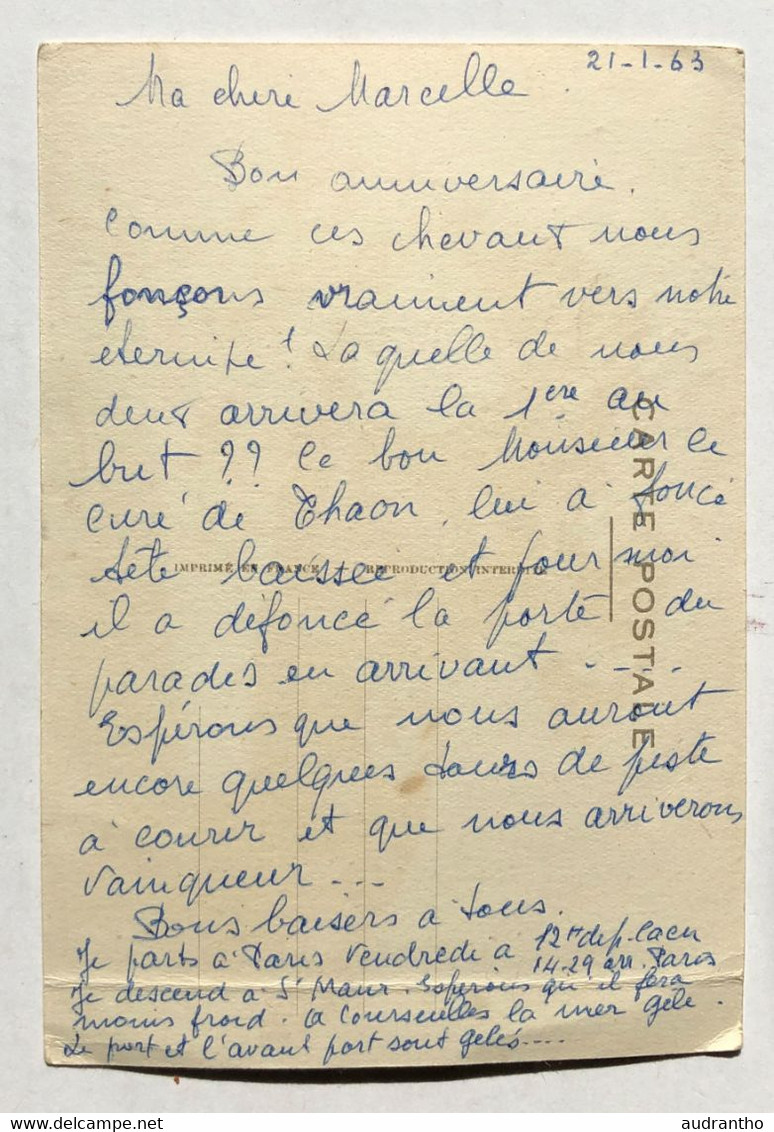 21-1-63
Ma cheré Marcelle
Bon anniversaire.
Comme ces chevaut nous
fonçons vraiment vers notre
eternite ! La quelle de nous
deut arrivera la 1ere au
but ?? Ce bon Monsieur le
curé de Thaon, lui a foncé
tête baissée et pour moi
il a défoncé la porte du
parades en arrivant ....
Espérons que nous auront
encore quelques tours de piste
à courrer et que nous arriverons
vainqueur ...
Bons baisers à tous.
Je parts à Paris Vendredi à 12h dep. Caen
14.29 arr. Paris
Je descend à St Maur. Esperons qu'il fera
moins froid. a Courseulles la mer gèle.
Le port et l'avant port sont gelés....
CARTE POSTALE
IMPRIMÉ EN FRANCE REPRODUCTION INTERDITE
www.delcampe.net
audrantho